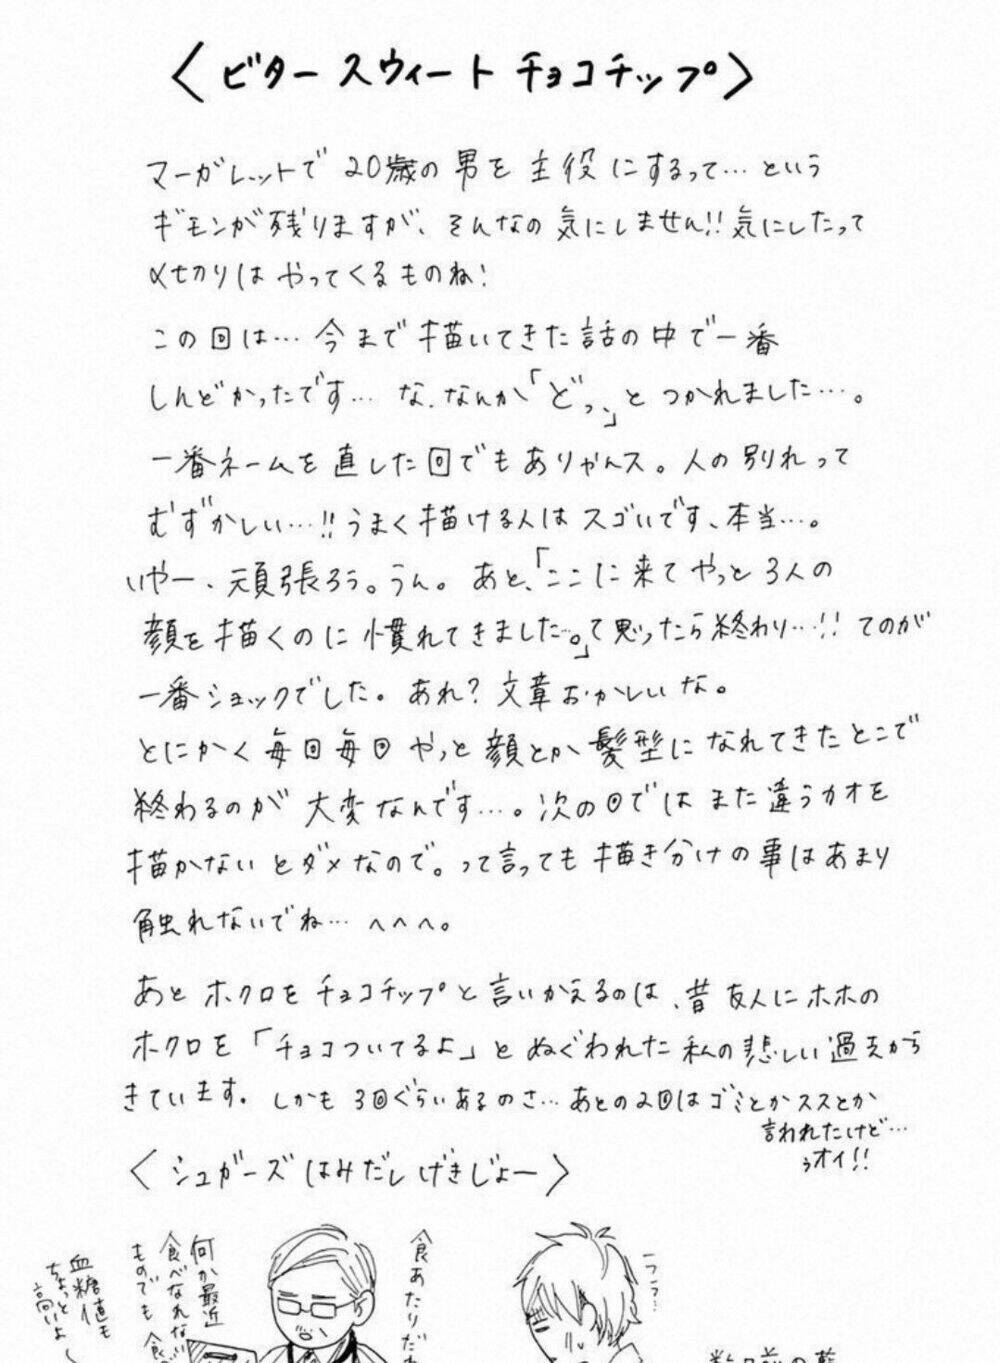 〈ビタースウィートチョコチップ〉
マーガレットで20歳の男を主役にするって…という
ギモンが残りますが、そんなの気にしません!!気にしたって
〆切りはやってくるものね!
この回は…今まで描いてきた話の中で一番
しんどかったです…な、なんか「どっ、」とつかれました…。
一番ネームを直した回でもありやんス。人の別れって
むずかしい…!!うまく描ける人はスゴいです、本当…。
いやー、頑張ろう。うん。あと、「ここに来てやっと3人の
顔を描くのに慣れてきました…。」て思ったら終わり…!!てのが
一番ショックでした。あれ?文章おかしいな。
とにかく毎回毎回やっと顔とか髪型になれてきたとこで
終わるのが大変なんです…。次の回ではまた違うカオを
描かないとダメなので。って言っても描き分けの事はあまり
触れないでね…へへへ。
あとホクロをチョコチップと言いかえるのは、昔友人にホホの
ホクロを「チョコついてるよ」とぬぐわれた私の悲しい過去から
きています。しかも3回ぐらいあるのさ…あとの2回はゴミとかススとか
言われたけど…
ぅオイ!!
〈シュガーズはみだしげきじょー〉
フフフ…
食あたりだね
何か最近
食べなれない
ものでも食
血糖値も
ちょっと
高いよ
数日前の